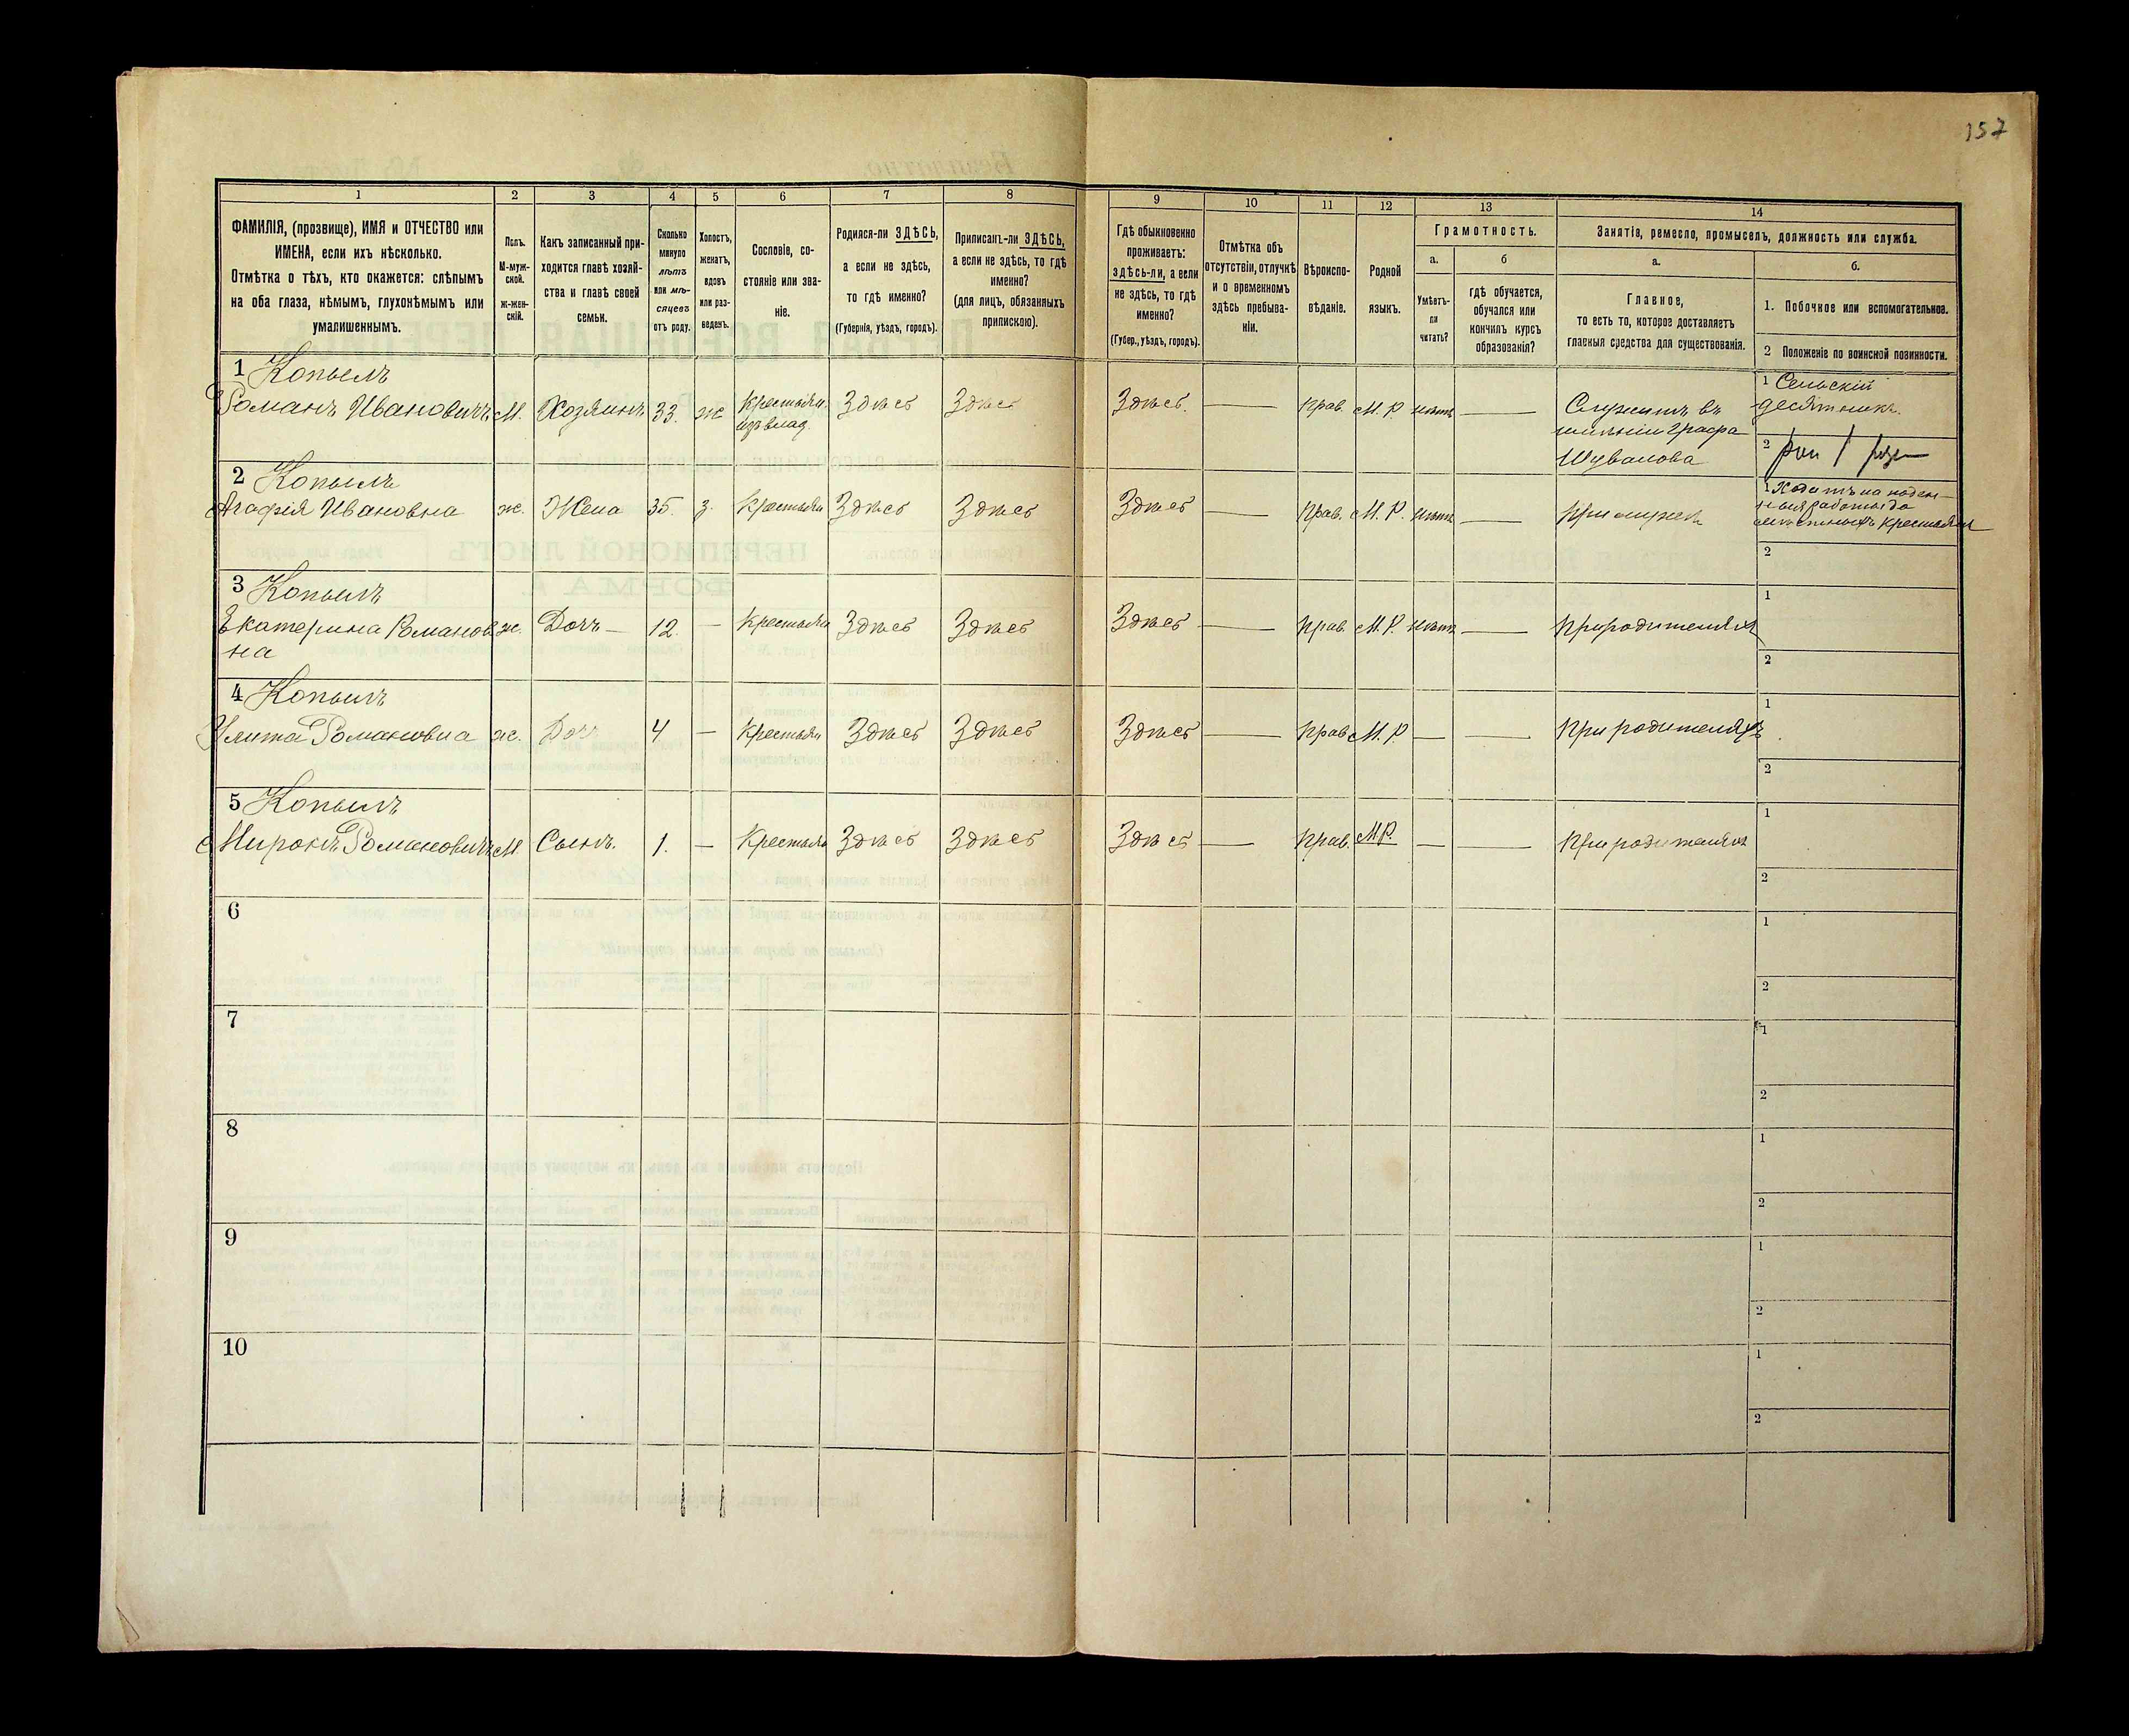 157
1
2
3
4
5
6
7
8
9
10
11
12
13
14
ФАМИЛІЯ, (прозвище), ИМЯ и ОТЧЕСТВО или
ИМЕНА, если ихъ нѣсколько.
Отмѣтка о тѣхъ, кто окажется: слѣпымъ
на оба глаза, нѣмымъ, глухонѣмымъ или
умалишеннымъ.
Полъ.
М-муж-
ской.
Ж-жен-
скій.
Какъ записанный при-
ходится главѣ хозяй-
ства и главѣ своей
семьи.
Сколько
минуло
лѣтъ
или мѣ-
сяцевъ
отъ роду.
Холостъ,
женатъ,
вдовъ
или раз-
веденъ.
Сословіе, со-
стояніе или зва-
ніе.
Родился-ли ЗДѢСЬ,
а если не здѣсь,
то гдѣ именно?
(Губернія, уѣздъ, городъ).
Приписанъ-ли ЗДѢСЬ,
а если не здѣсь, то гдѣ
именно?
(для лицъ, обязанныхъ
припискою).
Гдѣ обыкновенно
проживаетъ:
здѣсь-ли, а если
не здѣсь, то гдѣ
именно?
(Губер., уѣздъ, городъ).
Отмѣтка объ
отсутствіи, отлучкѣ
и о временномъ
здѣсь пребыва-
ніи.
Вѣроиспо-
вѣданіе.
Родной
языкъ.
Грамотность.
а.
Умѣетъ-
ли
читать?
б
гдѣ обучается,
обучался или
кончилъ курсъ
образованія?
Занятіе, ремесло, промыселъ, должность или служба.
а.
Главное,
то есть то, которое доставляетъ
главныя средства для существованія.
б.
1. Побочное или вспомогательное.
2 Положеніе по воинской повинности.
1 Копылъ
Романъ Ивановичъ М. Хозяинъ 33. ж Крестьян. Здѣсь Здѣсь Здѣсь. — Прав. М. Р. нѣтъ — Служитъ въ
изъ влад.
имѣніи Графа
Шувалова
1 Сельскій
десятникъ.
2
2 Копылъ
Агафія Ивановна ж. Жена 35. з. Крестьян Здѣсь Здѣсь Здѣсь — Прав. М. Р. нѣтъ — При мужѣ
1 Ходитъ на поден-
ныя работы до
мѣстныхъ крестьян
2
3 Копылъ
Екатерина Романов ж. Дочь — 12. — Крестьян Здѣсь Здѣсь Здѣсь — Прав. М. Р. нѣтъ — При родителях
на
1
2
4 Копылъ
Улита Романовна ж. Доч 4 — Крестьян Здѣсь Здѣсь Здѣсь — Прав М. Р. — — При родителяхъ
1
2
5 Копылъ
Миронъ Романовичъ М. Сынъ. 1. — Крестьян Здѣсь Здѣсь Здѣсь — Прав. М.Р. — — При родителях
1
2
6
1
2
7
1
2
8
1
2
9
1
2
10
1
2